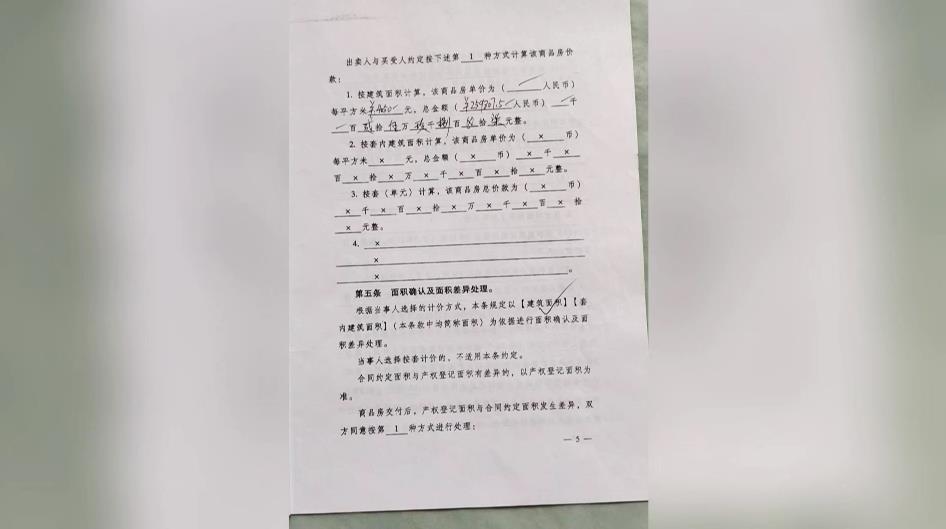 出卖人与买受人约定按下述第 1 种方式计算该商品房价
款：
1. 按建筑面积计算，该商品房单价为（ 人民币）
每平方米 元，总金额（ 人民币） 千
百 贰 拾 万 千 捌 百 拾 柒 元整。
2. 按套内建筑面积计算，该商品房单价为（ × 币）
每平方米 × 元，总金额（ × 币） × 千 ×
百 × 拾 × 万 × 千 × 百 × 拾 × 元整。
3. 按套（单元）计算，该商品房总价款为（ × 币）
× 千 × 百 × 拾 × 万 × 千 × 百 × 拾
× 元整。
4. ×
×
× 。
第五条 面积确认及面积差异处理。
根据当事人选择的计价方式，本条规定以【建筑面积】【套
内建筑面积】（本条款中均简称面积）为依据进行面积确认及面
积差异处理。
当事人选择按套计价的，不适用本条约定。
合同约定面积与产权登记面积有差异的，以产权登记面积为
准。
商品房交付后，产权登记面积与合同约定面积发生差异，双
方同意按第 1 种方式进行处理：
— 5 —